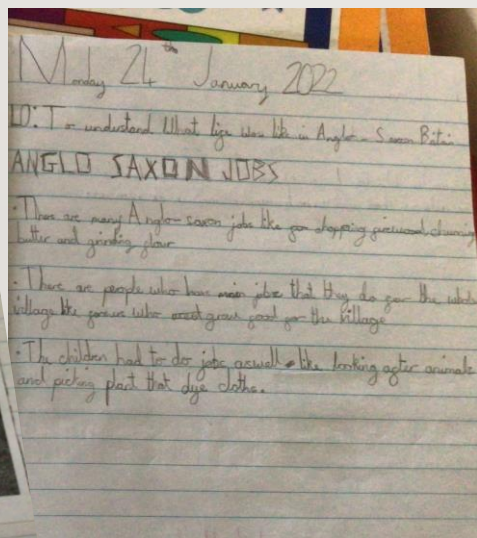 Monday 24th January 2022
LO: To understand What life was like in Anglo-Saxon Britain
ANGLO SAXON JOBS
• There are many Anglo-saxon jobs like for chopping firewood churning
butter and grinding flour
• There are people who have main jobs that they do for the whole
village like farmers who grow food for the village
• The children had to do jobs aswell like looking after animals
and picking plant that dye cloths.